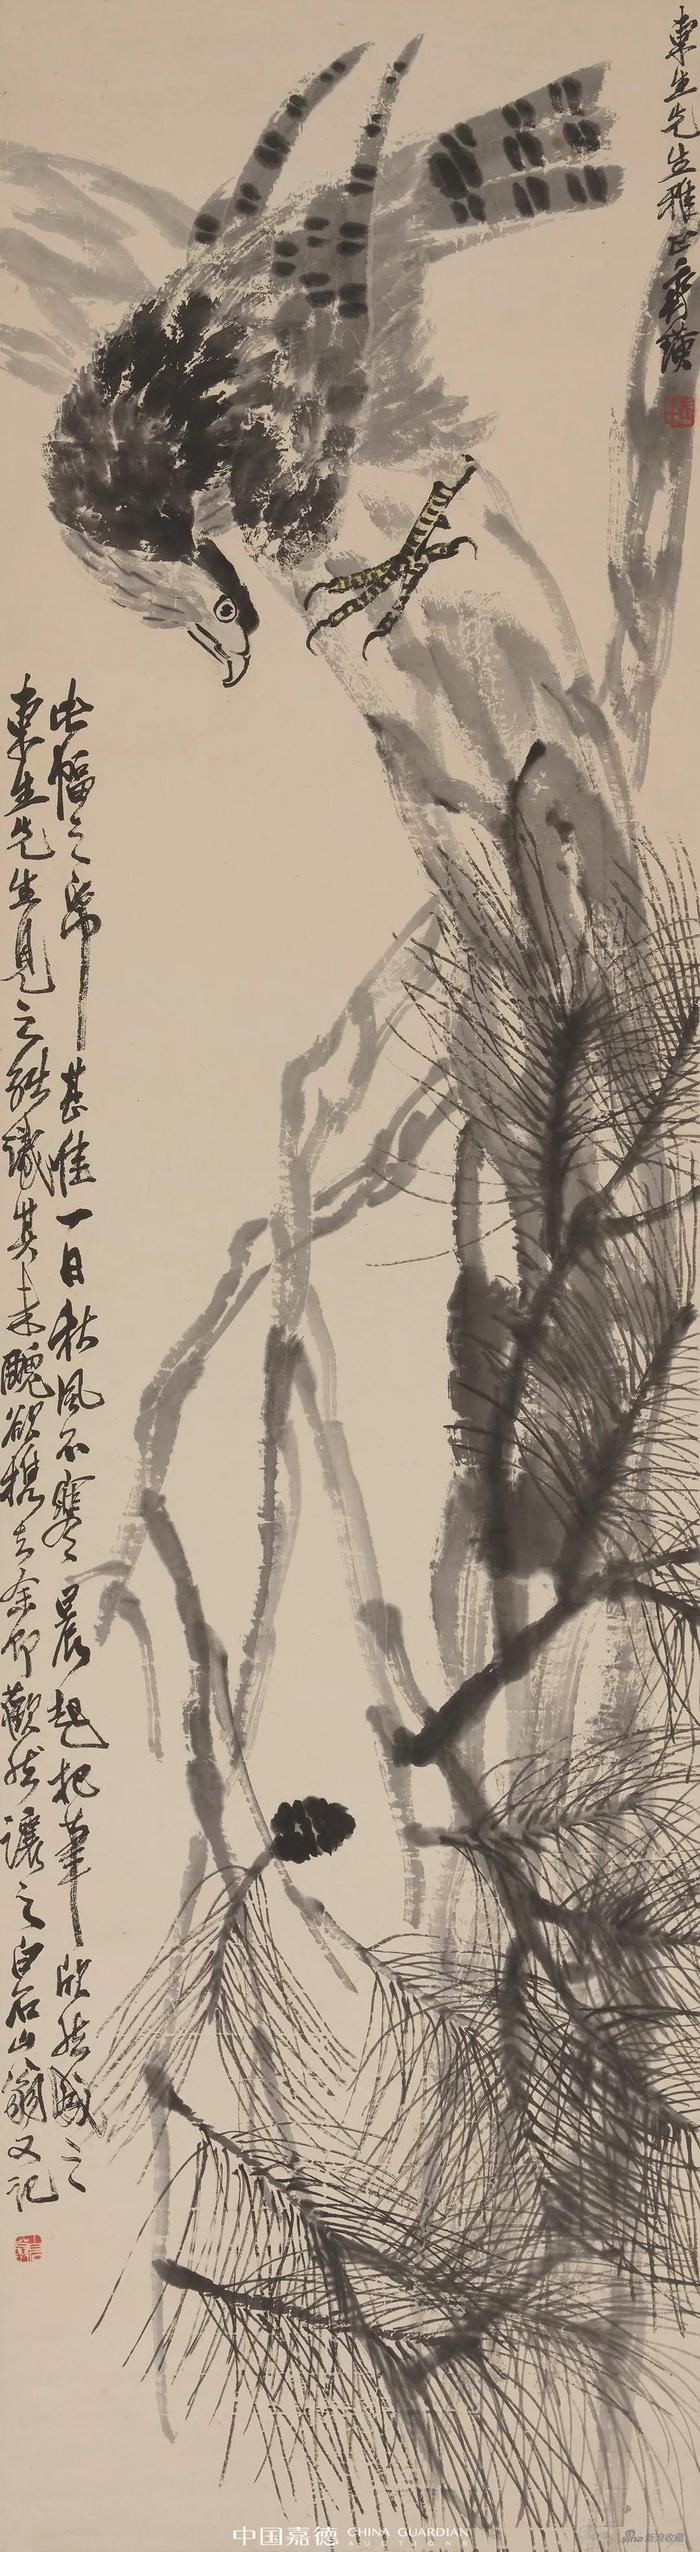 東生先生雅正齊璜
此幅之帋甚佳一日秋風不寒晨起把筆欣然成之
東生先生見之能識其未醜欲攜去余即歡然讓之白石山翁又記
中国嘉德 CHINA GUARDIAN
AUCTIONS
sina 新浪收藏